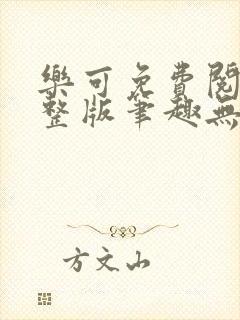 樂可免費閱
整版筆趣無
方文山